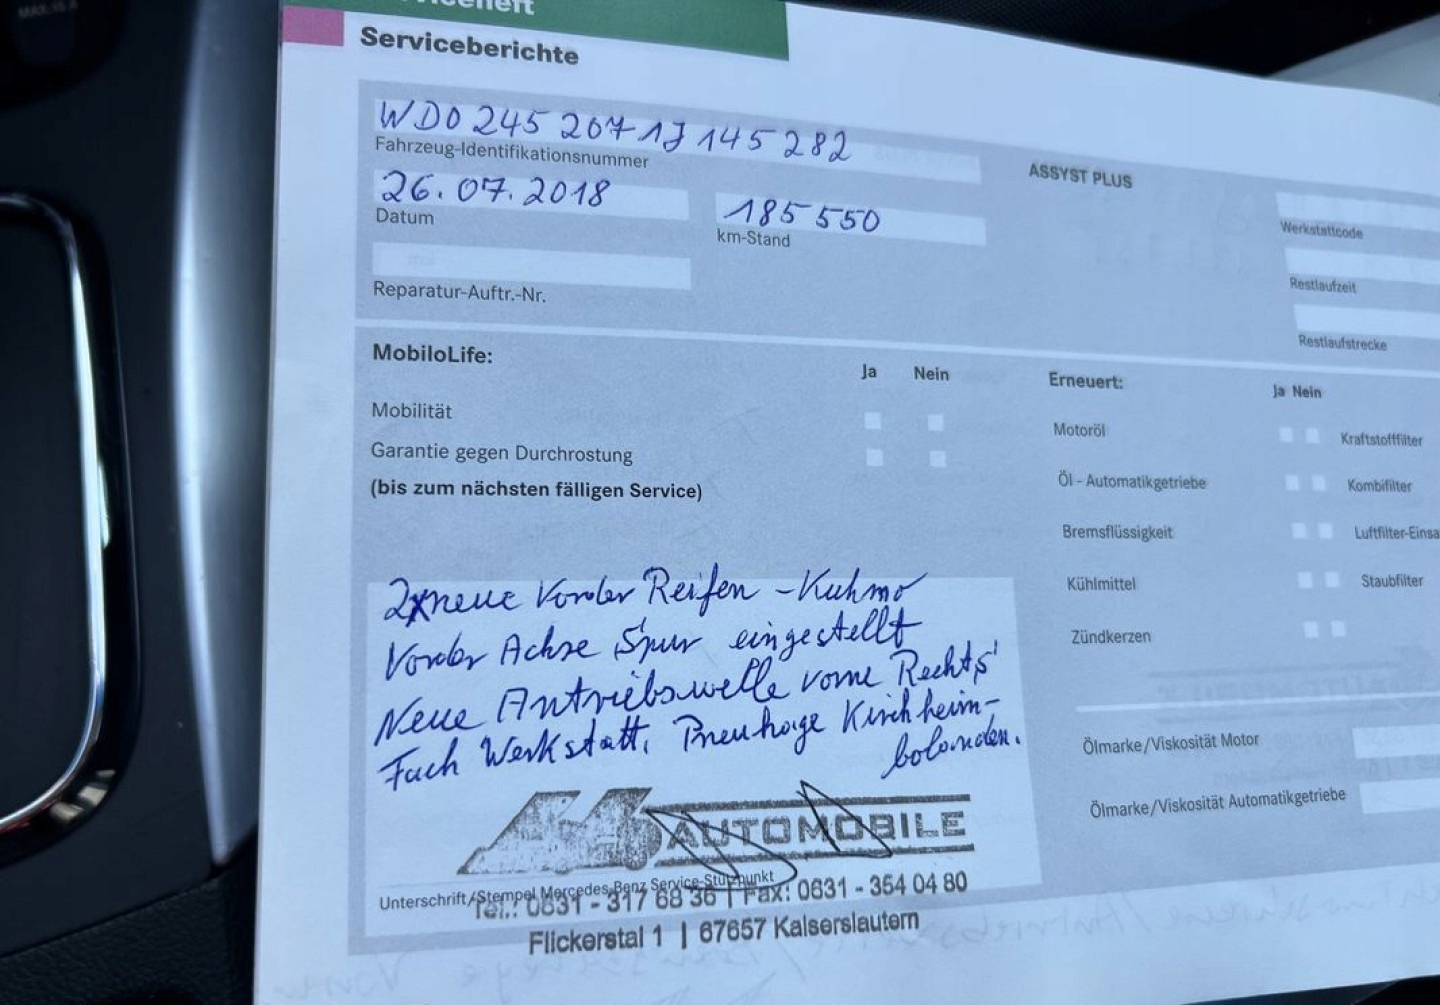 Serviceheft
Serviceberichte
WDD 245 207 1J 145 282
Fahrzeug-Identifikationsnummer
ASSYST PLUS
26.07.2018
Datum
185 550
km-Stand
Werkstattcode
Reparatur-Auftr.-Nr.
Restlaufzeit
Restlaufstrecke
MobiloLife:
Ja Nein
Mobilität
Garantie gegen Durchrostung
(bis zum nächsten fälligen Service)
Erneuert:
Ja Nein
Motoröl
Kraftstofffilter
Öl - Automatikgetriebe
Kombifilter
Bremsflüssigkeit
Luftfilter-Einsa
Kühlmittel
Staubfilter
Zündkerzen
Ölmarke/Viskosität Motor
Ölmarke/Viskosität Automatikgetriebe
2x neue Vorder Reifen - Kuhmo
Vorder Achse Spur eingestellt
Neue Antriebswelle vorne Rechts
Fach Werkstatt, Pneuhage Kirchheim-
bolanden.
AUTOMOBILE
Unterschrift/Stempel Mercedes-Benz Service-Stützpunkt
Tel.: 0631 - 317 68 36 | Fax: 0631 - 354 04 80
Flickerstal 1 | 67657 Kaiserslautern